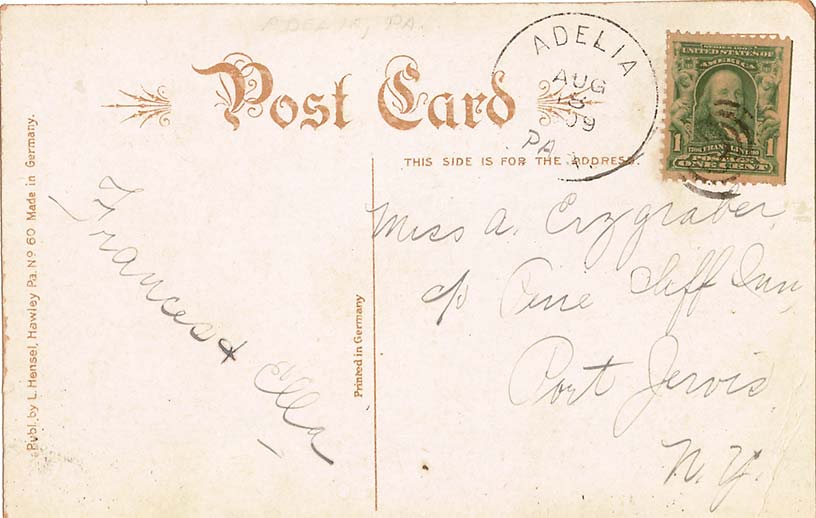 ADELIA, PA.
Post Card
THIS SIDE IS FOR THE ADDRESS.
ADELIA
AUG
09
PA.
SERIES 1902
UNITED STATES OF
AMERICA
1 FRANKLIN 1
POSTAGE
ONE CENT
Publ. by L. Hensel, Hawley Pa. No 60 Made in Germany.
Printed in Germany
Frances &
Ella
Miss A. Erzgraber
c/o Pine Cliff Inn
Port Jervis
N.Y.